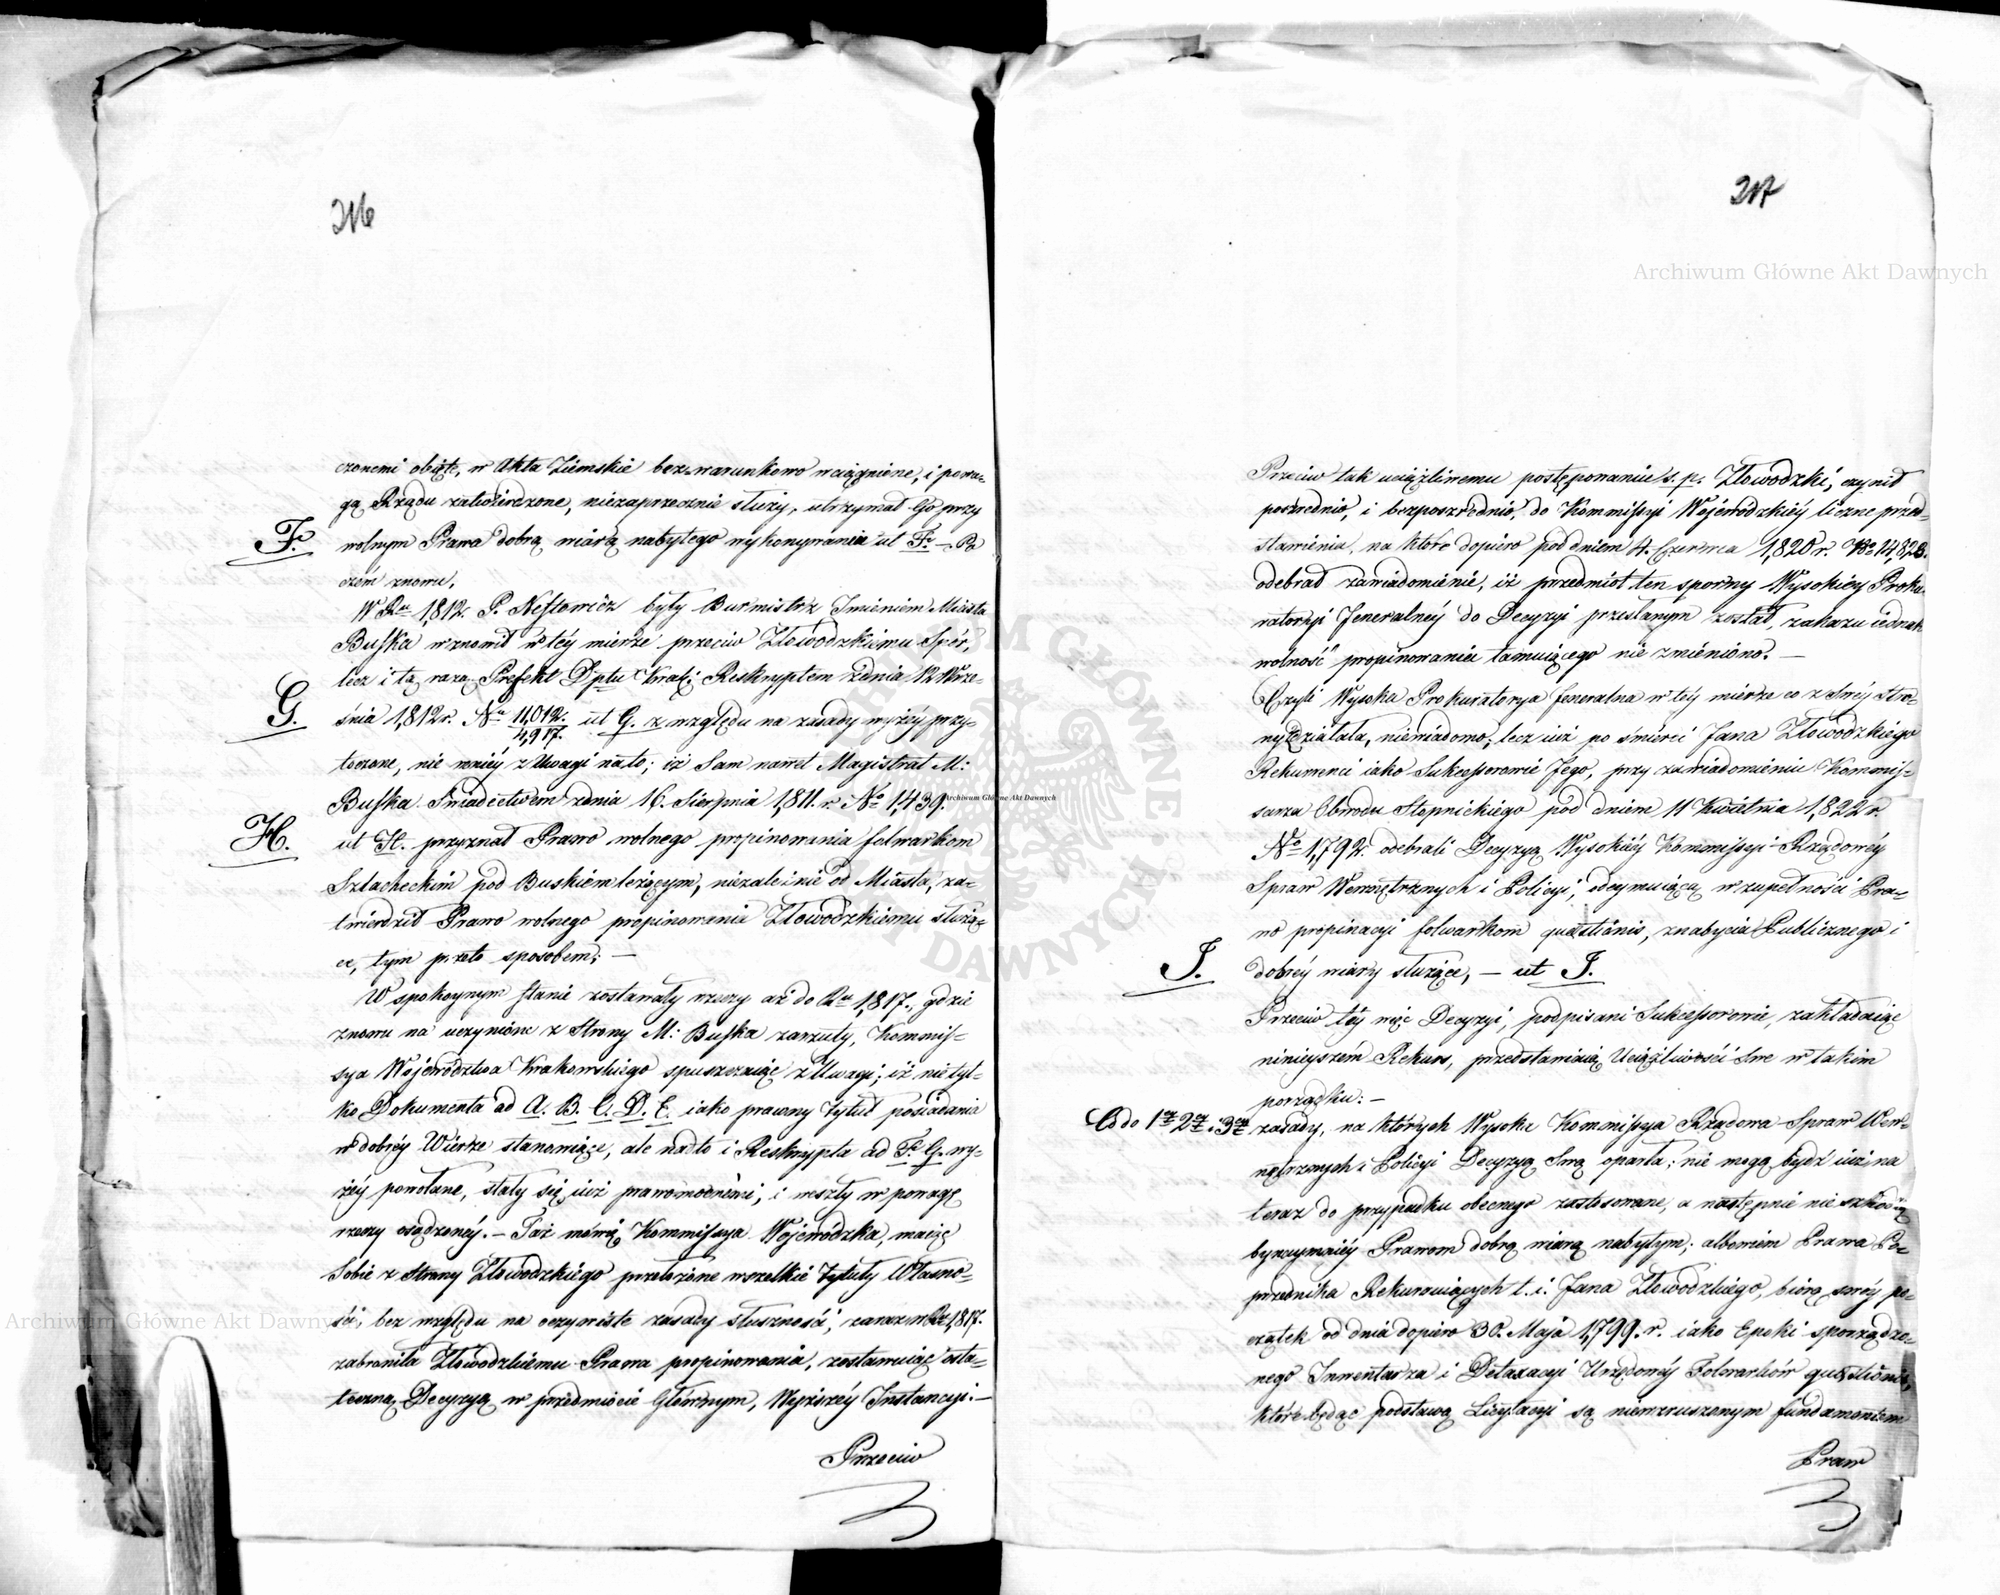 216
czonemi objęte, w Akta Ziemskie bez-warunkowo wciągnione, i powa-
gą Rządu zatwierdzone, niezaprzecznie służy, utrzymał Go przy
F. wolnym Prawa dobrą wiarą nabytego wykonywania ut F. — Po
czém znowu,
W Ru 1,812. P. Nestowicz były Burmistrz Imieniem Miasta
Buska wznowił w téy mierze przeciw Złowodzkiemu Spór,
lecz i tą razą Prefekt Dptu Krak: Reskryptem z dnia 12 Wrze-
G. śnia 1,812 r. No 11,012./4,917. ut G. z względu na zasady wyżéy przy-
toczone, nie mniéy z Uwagi na to; iż Sam nawet Magistrat M:
Buska Świadectwem z dnia 16. Sierpnia 1,811. r. No 1,439.
H. ut H. przyznał Prawo wolnego propinowania folwarkom
Szlacheckim pod Buskiem leżącym, niezależnie od Miasta, za-
twierdził Prawo wolnego propinowania Złowodzkiemu służą-
ce, tym przeto sposobem; —
W spokoynym stanie zostawały rzeczy aż do Ru 1,817., gdzie
znowu na uczynione z Strony M: Buska zarzuty, Kommis-
sya Województwa Krakowskiego spuszczaiąc z Uwagi; iż nietyl-
ko Dokumenta ad A. B. C. D. E. iako prawny tytuł posiadania
w dobréy Wierze stanowiące, ale nadto i Reskrypta ad F. G. wy-
żéy powołane, stały się iuż prawomocnémi, i weszły w powagę
rzeczy osądzonéy. — Taż mówię Kommissya Wojewódzka, maiąc
Sobie z Strony Złowodzkiego przełożone wszelkie tytuły Własno-
ści, bez względu na oczywiste zasady słuszności, zaraz w Rz 1,817.
zabroniła Złowodzkiemu Prawa propinowania, zostawuiąc osta-
teczną Decyzyą w przedmiocie Głównym, Wyższéy Instancyi. —
Przeciw
217
Przeciw tak uciążliwemu postępowaniu s. p. Złowodzki, czynił
pośrednio, i bezpośrednio, do Kommissyi Wojewódzkiéy liczne przed-
stawienia, na które dopiero pod dniem 4. Czerwca 1,820 r. No 14,823.
odebrał zawiadomienie, iż przedmiot ten sporny Wysokiéy Proku-
ratoryi Jeneralnéy do Decyzyi przesłanym został, zakazu iednak
wolność propinowania tamuiącego nie zmieniono. —
Czyli Wysoka Prokuratorya Jeneralna w téy mierze co z swéy stro-
ny działała, niewiadomo; lecz iuż po śmierci Jana Złowodzkiego
Rekurenci iako Sukcessorowie Jego, przy zawiadomieniu Kommis-
sarza Obwodu Stopnickiego pod dniem 11 Kwietnia 1,822 r.
No 1,792. odebrali Decyzyą Wysokiéy Kommissyi Rządowéy
Spraw Wewnętrznych i Policyi, odeymuiącą w zupełności Pra-
wo propinacyi folwarkom quaestionis, z nabycia Publicznego i
J. dobréy wiary służące, — ut J.
Przeciw téy więc Decyzyi, podpisani Sukcessorowie, zakładaiąc
ninieyszém Rekurs, przedstawiaią Uciążliwości Swe w takim
porządku: —
Co do 1go 2go i 3go zasady, na których Wysoka Kommissya Rządowa Spraw Wew-
nętrznych i Policyi Decyzyą Swą oparła; nie mogą bydź iuż na
teraz do przypadku obecnego zastosowane, a następnie nie szkodzą
bynaymniéy Prawom dobrą wiarą nabytym; albowiem Prawa Po-
przednika Rekuruiących t. i. Jana Złowodzkiego, biorą swóy po-
czątek od dnia dopiero 30. Maja 1,799. r. iako Epoki sporządzo-
nego Inwentarza i Detaxacyi Urzędowéy Folwarków quaestionis,
które będąc podstawą Licytacyi są niewzruszonym fundamentem
Praw
Archiwum Główne Akt Dawnych
Archiwum Główne Akt Dawnych
Archiwum Główne Akt Dawnych